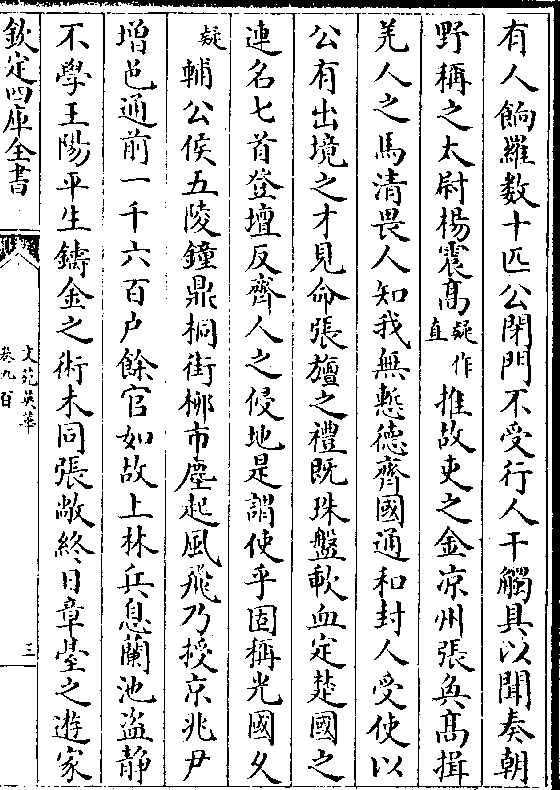 有人餉羅数十匹公閉門不受行人干觸具以聞奏朝
野稱之太尉楊震高疑作直推故吏之金凉州張奐高揖
羌人之馬清畏人知我無慙德齊國通和封人受使以
公有出境之才見命張旜之禮既珠盤歃血定楚國之
連名七首登壇反齊人之侵地是謂使乎固稱光國久
疑輔公侯五陵鐘鼎桐街栁市塵起風飛乃授京兆尹
增邑通前一千六百户餘官如故上林兵息蘭池盗静
不學王陽平生鑄金之術未同張敞終日章䑓之遊家
欽定四庫全書
文苑英華
卷九百
三